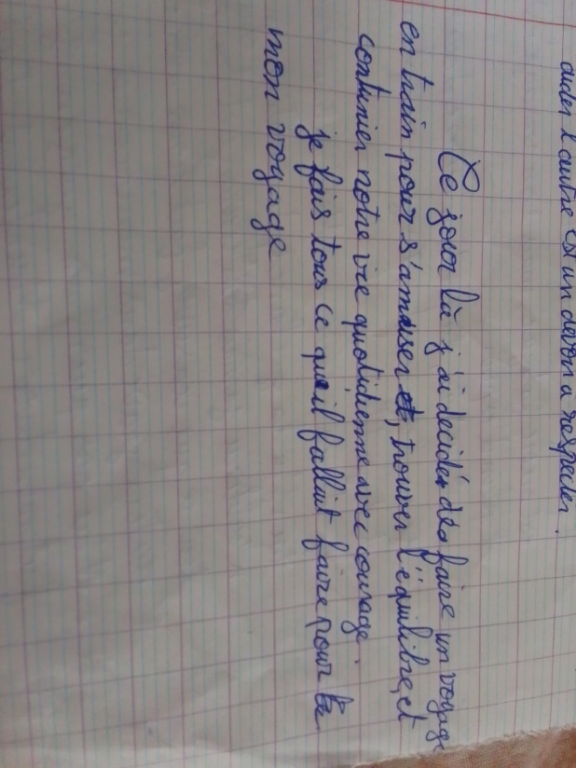 aider l'autre est un devoir a respecter.
Ce jour là j'ai decidér des faire un voyage
en train pour s'amuser et, trouver l'équilibre, et
continier notre vie quotidienne avec courage.
je fais tous ce qu'il fallait faire pour
mon voyage